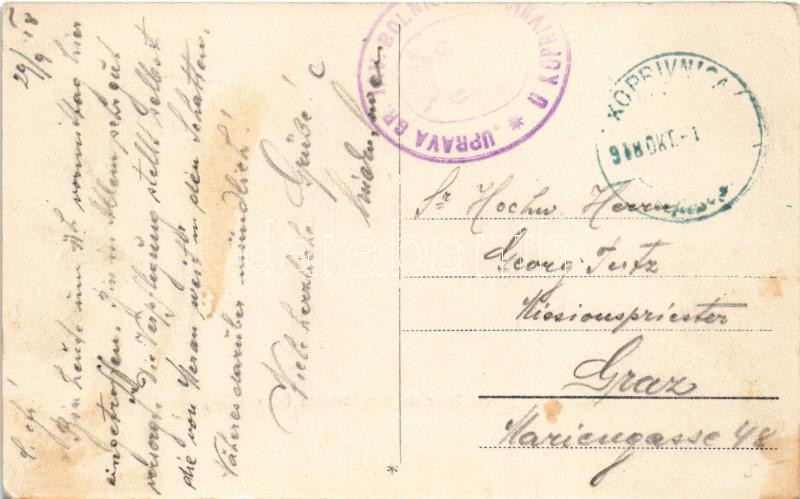 29/9 18
Bin heute um 11h vormittag hier
eingetroffen. Bin in Allem sehr gut
versorgt. Die Verpflegung stellt selbst
die von Meran weit in den Schatten.
Näheres darüber mündlich!
Viele herzliche Grüße!
UPRAVA GR. BOLNICE U KOPRIVNICI *
KOPRIVNICA
918 OKT -1
Sr Hochw. Herrn
Georg
Missionspriester
Graz
Mariengasse 48
*